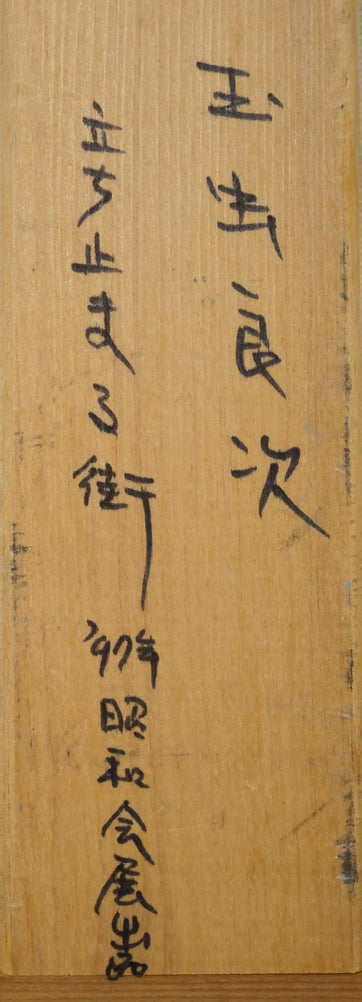 玉虫良次
立ち止まる街 '97年昭和会展出品